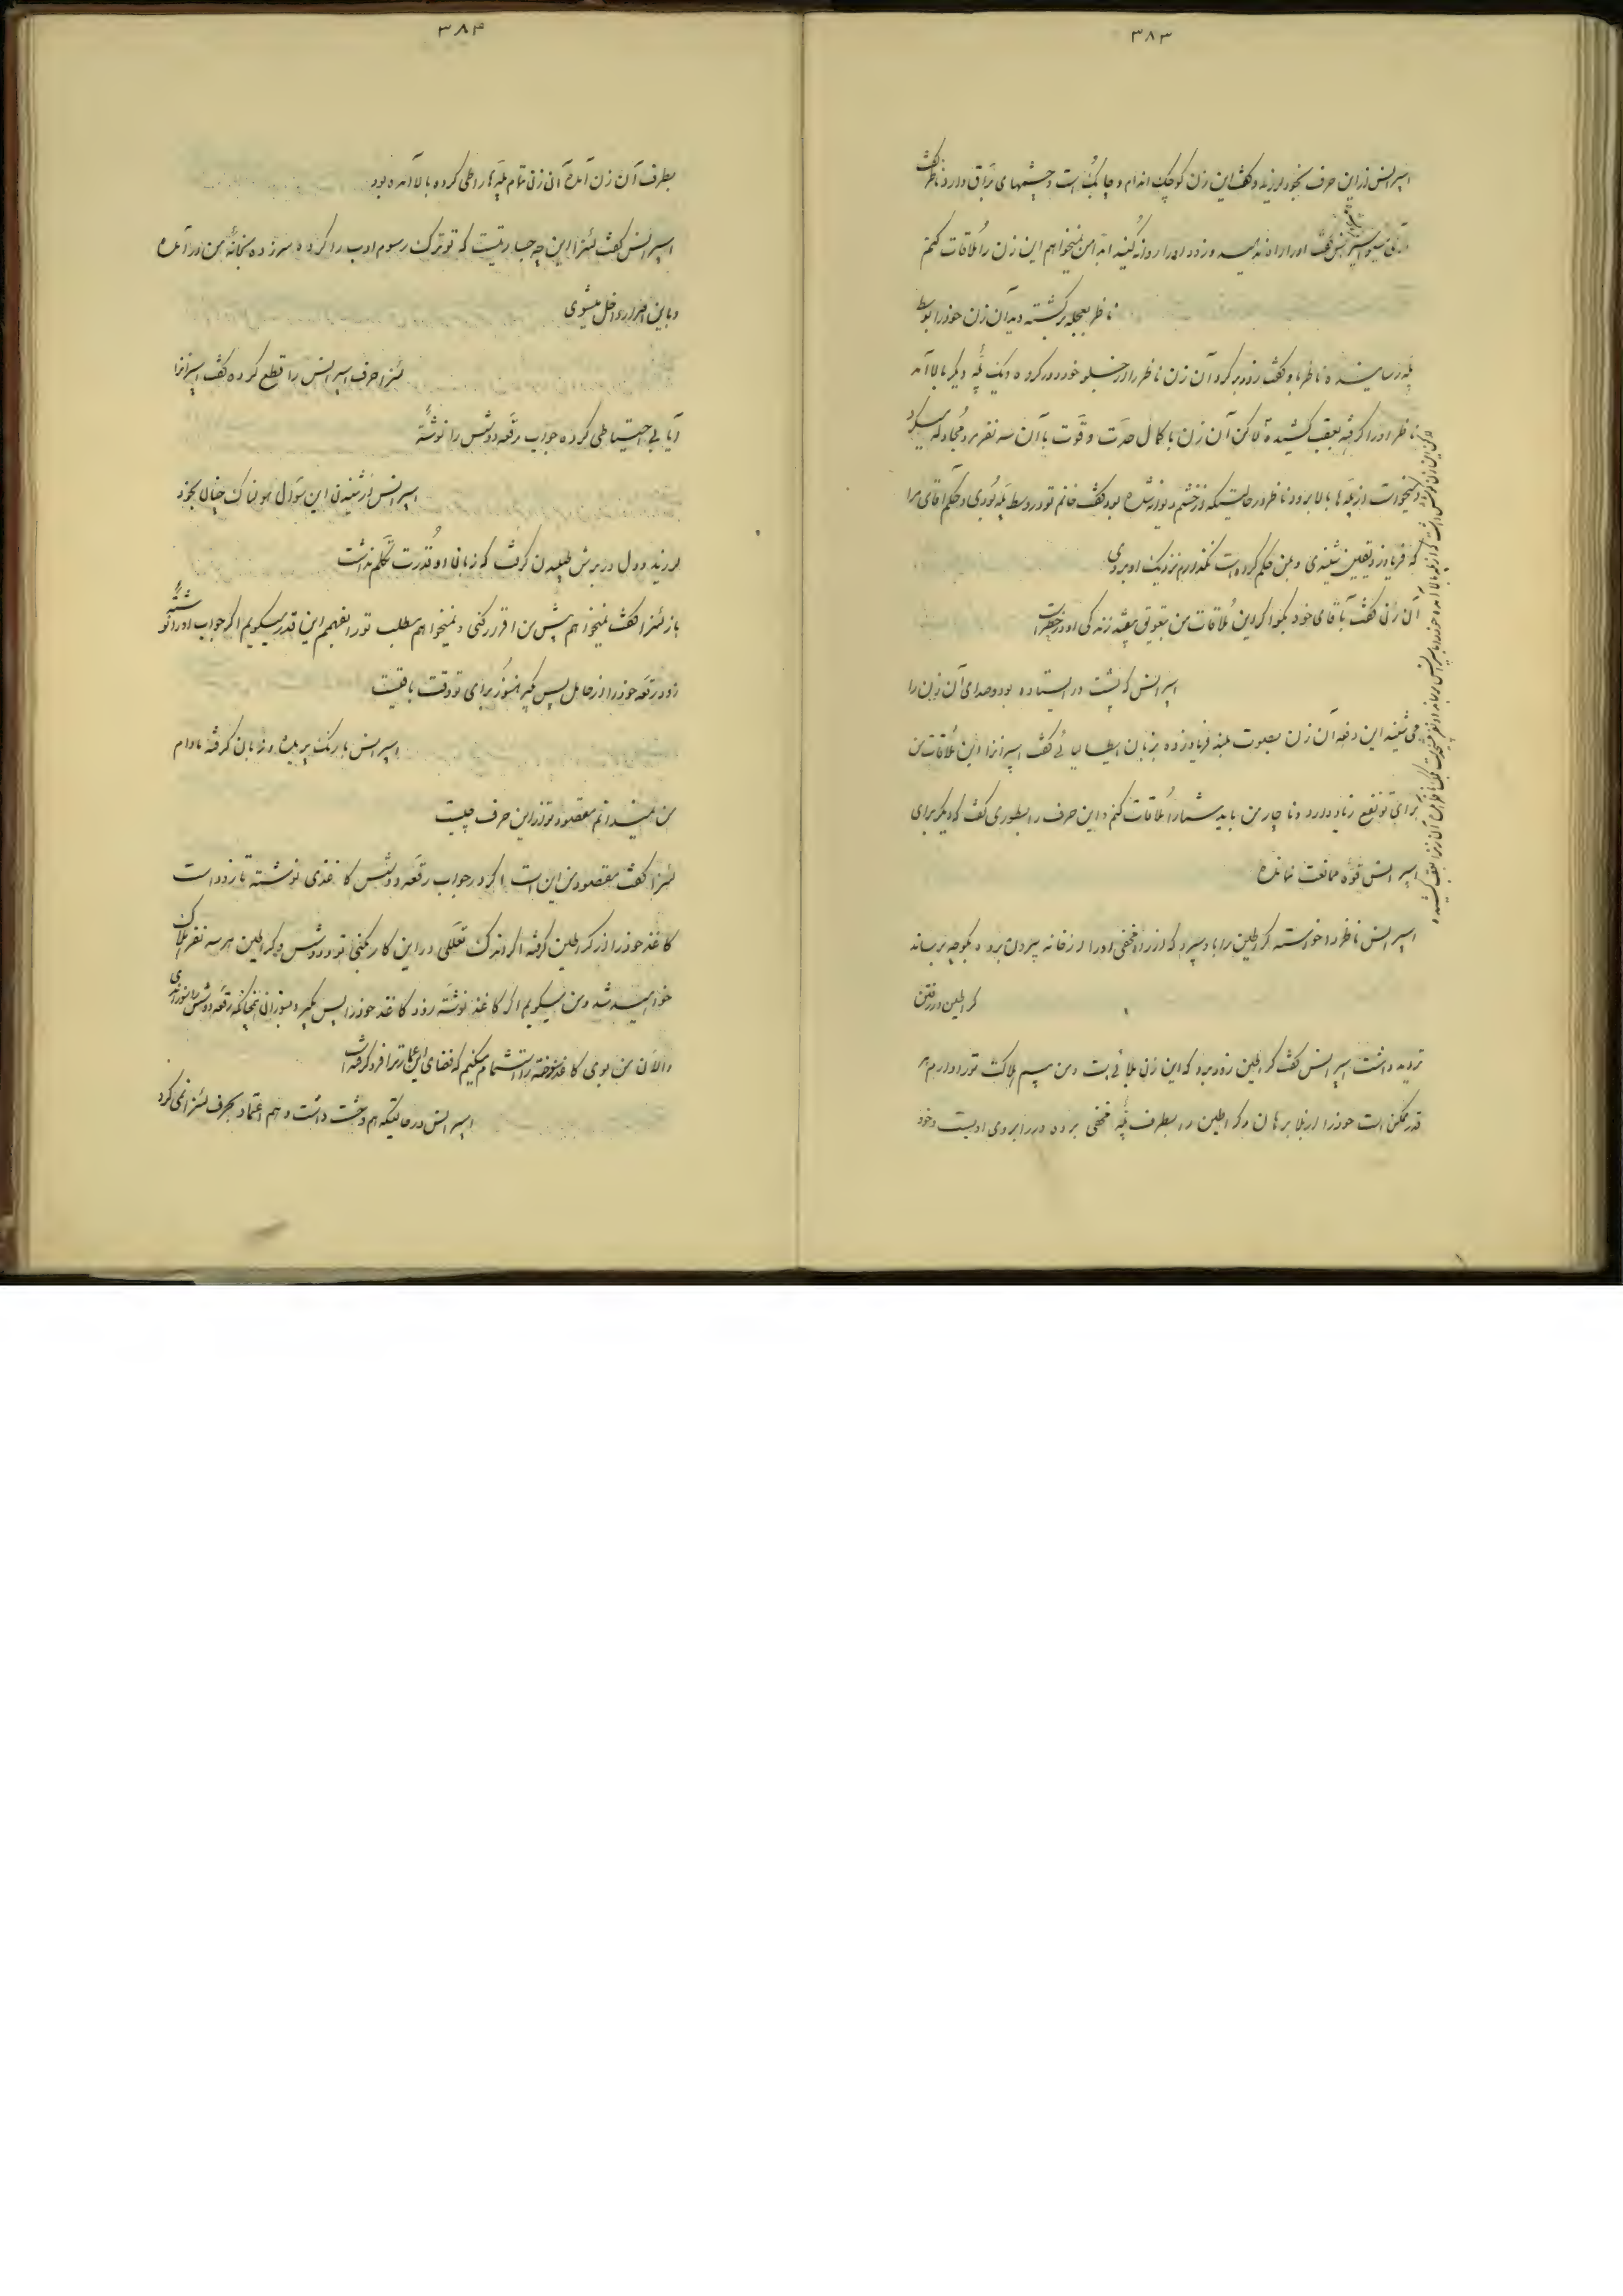 ۳۸۳
اسپرانس ازین حرف بخود لرزید و گفت این زن کوچک اندام و چابک است و چشمهای براق دارد ناظر گفت
اسپرانس گفت او را راه ندهید و زود او را روانه کنید ابدا من نمیخواهم این زن را ملاقات کنم
ناظر بعجله برگشته دید آن زن خود را بوسط
پله رسانیده ناظر باو گفت زود برگرد آن زن ناظر را از جلو خود دور کرده و یک پله دیگر بالا آمد
ناظر او را گرفته بعقب کشیده لاکن آن زن با کمال حدت و قوت با آن سه نفر مرد مجادله میکرد
و میخواست از پله ها بالا برود ناظر در حالتیکه از خشم دیوانه شده بود گفت خانم تو در وسط پله بودی و حکم آقای مرا
که فریاد زد یقین شنیدی و بمن حکم کرده است نگذارم نزدیک او بروی
آن زن گفت بآقای خود بگو اگر این ملاقات من بتعویق بیفتد زندگی او در خطر است
اسپرانس که پشت در ایستاده بود و صدای آن زن را
می شنید این دفعه آن زن بصوت بلند فریاد زده بزبان ایطالیائی گفت اسپرانزا این ملاقات من
برای تو نفع زیاد دارد و ناچار من باید شما را ملاقات کنم و این حرف را بطوری گفت که دیگر برای
اسپرانس قوه ممانعت نمانده
اسپرانس ناظر را خواسته گراطین را باو سپرد که از راه مخفی او را از خانه بیرون برده بکوچه برساند
گراطین در رفتن
تردید داشت اسپرانس گفت گراطین زود برو که این زن بلائی است و من بیم هلاکت تو را دارم هر
قدر ممکن است خود را از بلا برهان و گراطین را بطرف پله مخفی برده در را بروی او بست و خود
۳۸۴
بطرف آن زن آمد آن زن تمام پله ها را طی کرده بالا آمده بود
اسپرانس گفت لئنزا این چه جسارتیست که تو ترک رسوم ادب را کرده سرزده بخانه من در آمده
و باین اصرار داخل میشوی
لئنزا حرف اسپرانس را قطع کرده گفت اسپرانزا
آیا بی احتیاطی کرده جواب رقعه دوشس را نوشته
اسپرانس از شنیدن این سؤال هولناک چنان بخود
لرزید و دل در برش طپیدن گرفت که زبان او قدرت تکلم نداشت
باز لئنزا گفت نمیخواهم پیش من اقرار کنی و نمیخواهم مطلب تو را بفهمم این قدر میگویم اگر جواب او را نوشته
زود رقعه خود را از حامل پس بگیر هنوز برای تو وقت باقیست
اسپرانس با رنگ پریده و زبان گرفته مادام
من نمیدانم مقصود تو از این حرف چیست
لئنزا گفت مقصود من این است اگر در جواب رقعه دوشس کاغذی نوشته تا زود است
کاغذ خود را از گراطین گرفته اگر اندک تعللی در این کار بکنی تو و دوشس و گراطین هر سه نفر هلاک
خواهید شد و من میگویم اگر کاغذ نوشته زود کاغذ خود را پس بگیر و بسوزان چنانکه رقعه دوشس را سوزاندی
و الآن من بوی کاغذ سوخته را استشمام میکنم که فضای این عمارت را فرو گرفته است
اسپرانس در حالتیکه هم وحشت داشت و هم اعتماد بحرف لئنزا نمی کرد